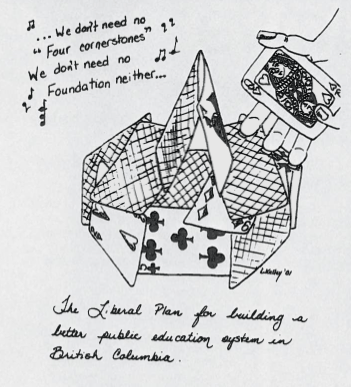 ... We don't need no
"Four cornerstones"
We don't need no
Foundation neither...
The Liberal Plan for building a
better public education system in
British Columbia.